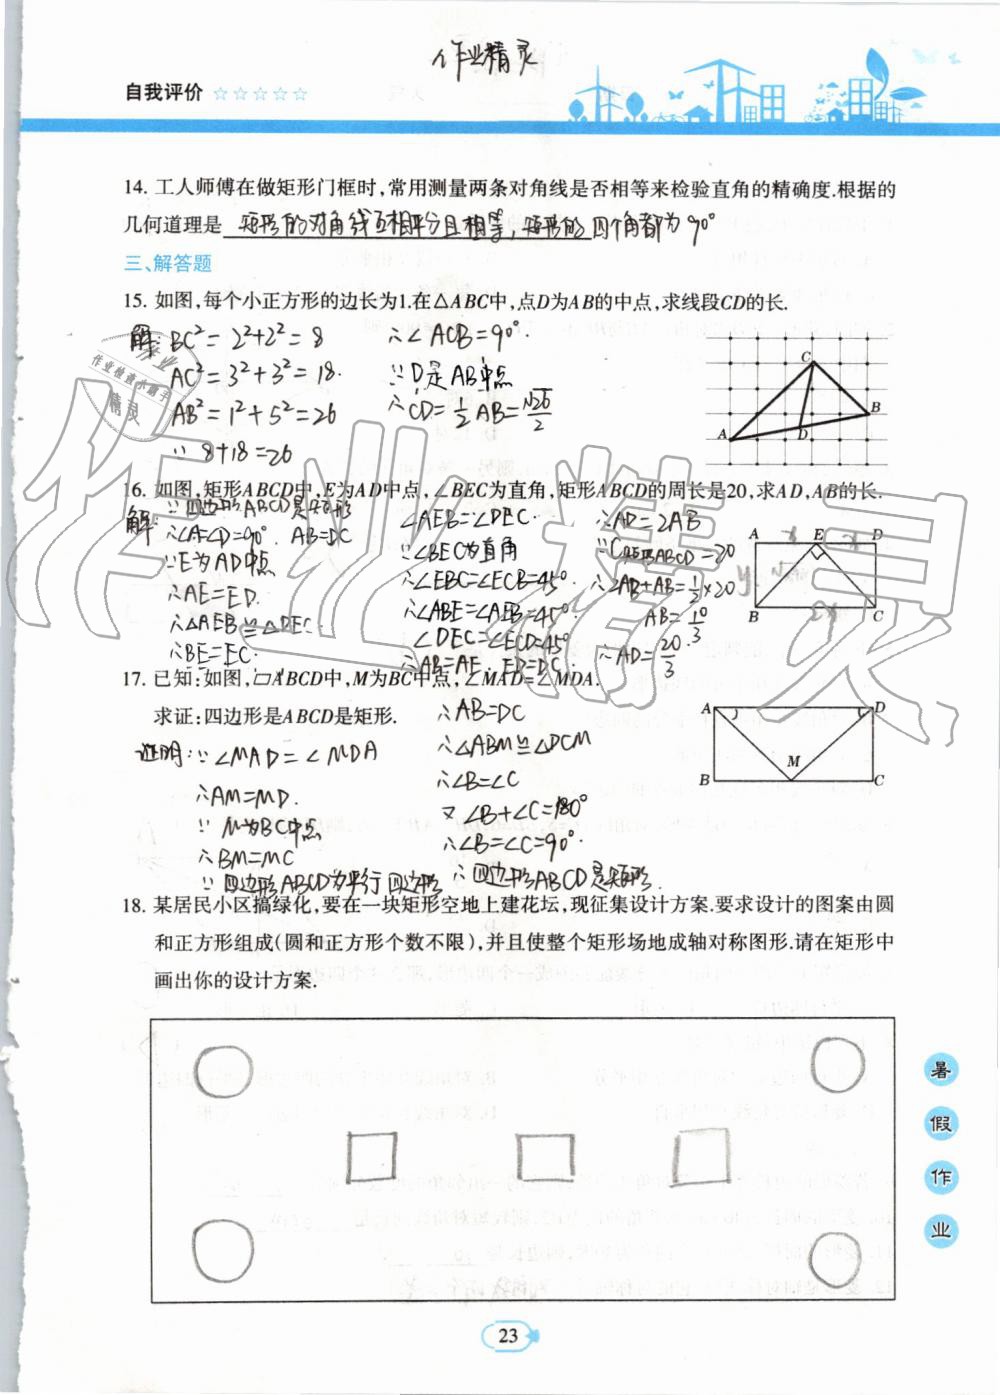 作业精灵
自我评价 ☆☆☆☆☆
14. 工人师傅在做矩形门框时,常用测量两条对角线是否相等来检验直角的精确度.根据的
几何道理是 矩形的对角线互相平分且相等,矩形的四个角都为90°
三、解答题
15. 如图,每个小正方形的边长为1.在△ABC中,点D为AB的中点,求线段CD的长.
解: BC²=2²+2²=8
AC²=3²+3²=18.
AB²=1²+5²=26
∵ 8+18=26
∴∠ACB=90°.
∵D是AB中点
∴CD=1/2 AB=√26/2
A
B
C
D
16. 如图,矩形ABCD中,E为AD中点,∠BEC为直角,矩形ABCD的周长是20,求AD,AB的长.
解: ∵四边形ABCD是矩形
∴∠A=∠D=90°. AB=DC
∵E为AD中点
∴AE=ED.
∴△AEB≌△DEC.
∴BE=EC.
∠AEB=∠DEC.
∵∠BEC为直角
∴∠EBC=∠ECB=45°
∴∠ABE=∠AEB=45°
∠DEC=∠ECD=45°
∴AB=AE. ED=DC.
∴AD=2AB
∵C矩形ABCD=20
∴2AB+AB=1/2×20
AB=10/3
∴AD=20/3
A E D
B C
17. 已知:如图,▱ABCD中,M为BC中点,∠MAD=∠MDA.
求证:四边形是ABCD是矩形.
证明:∵∠MAD=∠MDA
∴AM=MD.
∵ M为BC中点
∴BM=MC
∵ 四边形ABCD为平行四边形
∴AB=DC
∴△ABM≌△DCM
∴∠B=∠C
又∠B+∠C=180°
∴∠B=∠C=90°.
∴四边形ABCD是矩形.
A D
M
B C
18. 某居民小区搞绿化,要在一块矩形空地上建花坛,现征集设计方案.要求设计的图案由圆
和正方形组成(圆和正方形个数不限),并且使整个矩形场地成轴对称图形.请在矩形中
画出你的设计方案.
暑
假
作
业
23
作业精灵